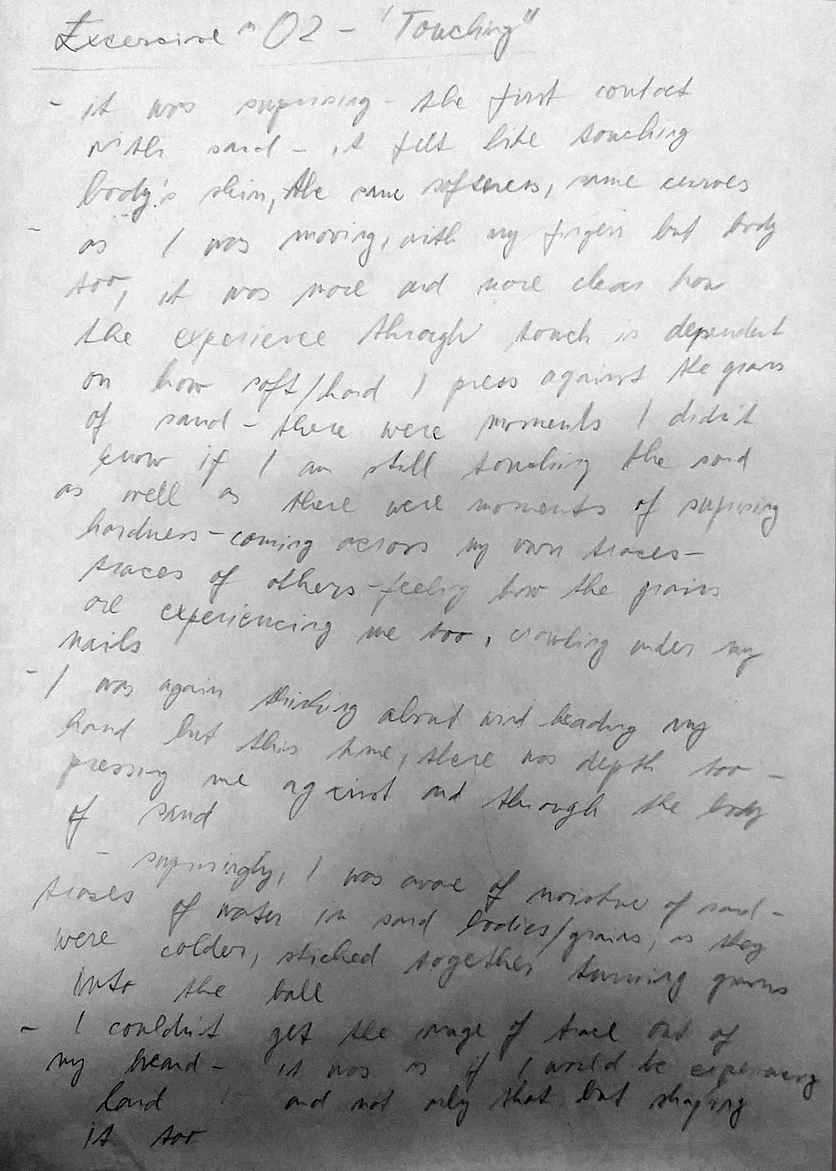 Excercise n°02 - "Touching"
- it was suprising - the first contact
with sand - it felt like touching
body's skin, the same softeness, same curves
- as I was moving, with my fingers but body
too, it was more and more clear how
the experience through touch is dependent
on how soft/hard I press against the grains
of sand - there were moments I didn't
know if I am still touching the sand
as well as there were moments of suprising
hardness - coming across my own traces -
traces of others - feeling how the grains
are experiencing me too, crawling under my
nails
- I was again thinking about wind leading my
hand but this time, there was depth too -
pressing me against and through the body
of sand
- suprisingly, I was aware of moisture of sand -
traces of water in sand bodies/grains, as they
were colder, sticked together turning grains
into the ball
- I couldn't get the image of trace out of
my head - it was as if I would be experiencing
land and not only that but shaping
it too